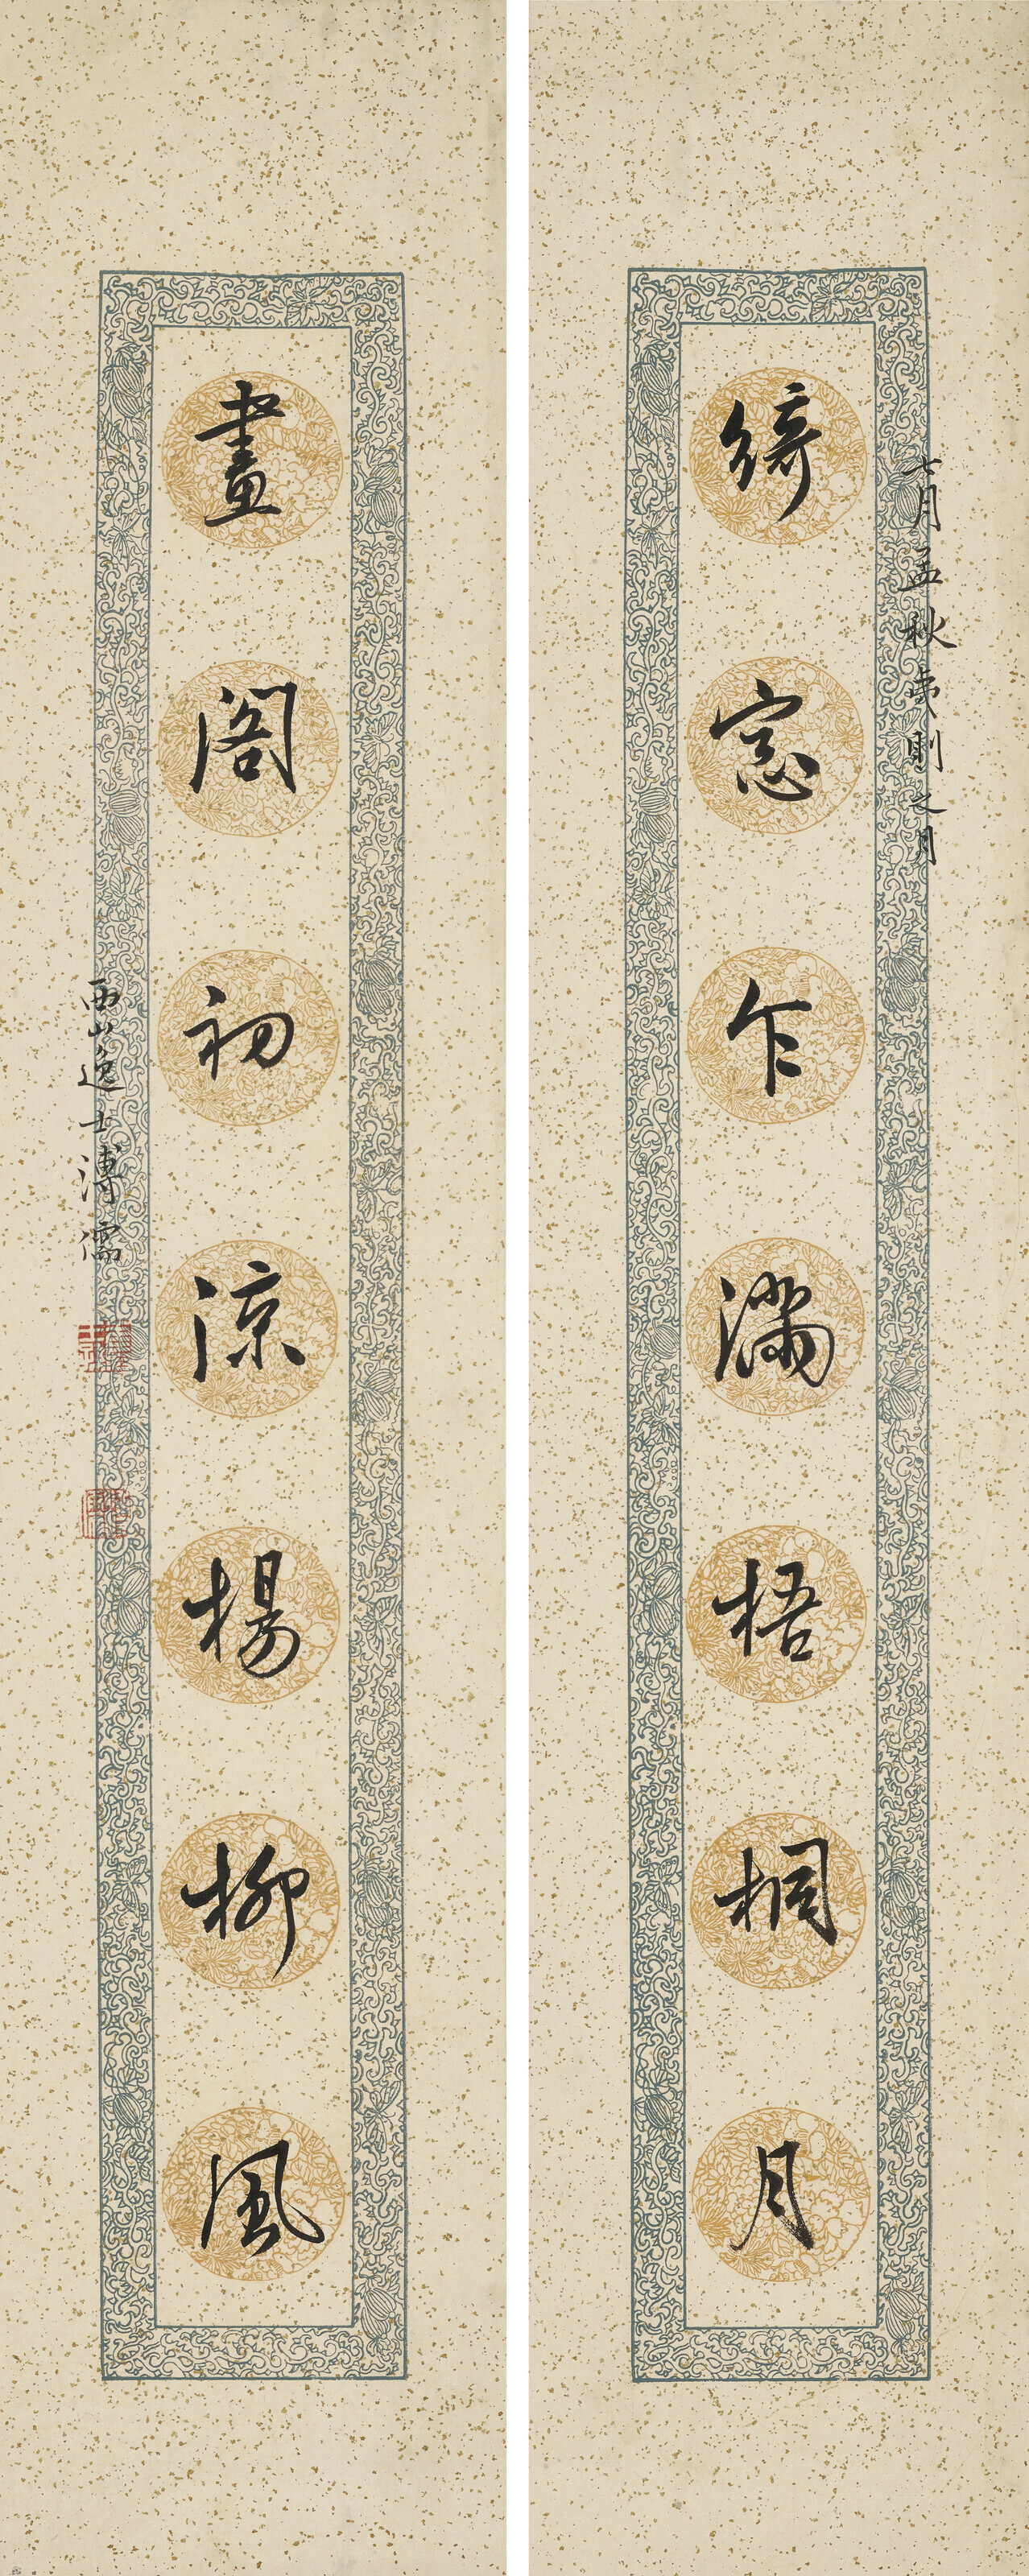 七月孟秋夷則之月
綺窓乍滿梧桐月
畫閣初涼楊柳風
西山逸士溥儒